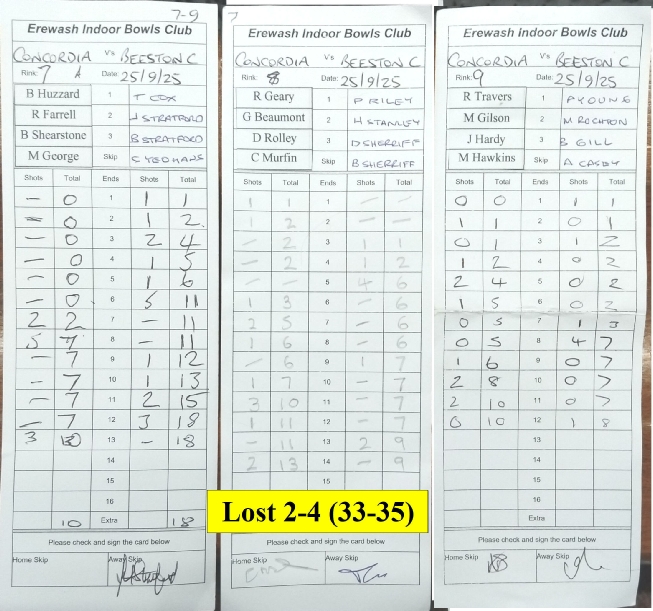 7-9
Erewash Indoor Bowls Club
CONCORDIA Vs BEESTON C
Rink: 7 A Date: 25/9/25
B Huzzard 1 T COX
R Farrell 2 J STRATFORD
B Shearstone 3 B STRATFORD
M George Skip C YEOMANS
Shots Total Ends Shots Total
– 0 1 1 1
– 0 2 1 2
– 0 3 2 4
– 0 4 1 5
– 0 5 1 6
– 0 6 5 11
2 2 7 – 11
5 7 8 – 11
– 7 9 1 12
– 7 10 1 13
– 7 11 2 15
– 7 12 3 18
3 10 13 – 18
14
15
16
10 Extra 18
Please check and sign the card below
Home Skip Away Skip
7
Erewash Indoor Bowls Club
CONCORDIA Vs BEESTON C
Rink: 8 Date: 25/9/25
R Geary 1 P RILEY
G Beaumont 2 H STANLEY
D Rolley 3 D SHERRIFF
C Murfin Skip B SHERRIFF
Shots Total Ends Shots Total
1 1 1 – –
1 2 2 – –
– 2 3 1 1
– 2 4 1 2
– – 5 4 6
1 3 6 – 6
2 5 7 – 6
1 6 8 – 6
– 6 9 1 7
1 7 10 – 7
3 10 11 – 7
1 11 12 – 7
– 11 13 2 9
2 13 14 – 9
15
Lost 2-4 (33-35)
Please check and sign the card below
Home Skip Away Skip
Erewash Indoor Bowls Club
CONCORDIA Vs BEESTON C
Rink: 9 Date: 25/9/25
R Travers 1 P YOUNG
M Gilson 2 M
J Hardy 3 B GILL
M Hawkins Skip A CASEY
Shots Total Ends Shots Total
0 0 1 1 1
1 1 2 0 1
0 1 3 1 2
1 2 4 0 2
2 4 5 0 2
1 5 6 0 2
0 5 7 1 3
0 5 8 4 7
1 6 9 0 7
2 8 10 0 7
2 10 11 0 7
0 10 12 1 8
13
14
15
16
Extra
Please check and sign the card below
Home Skip Away Skip